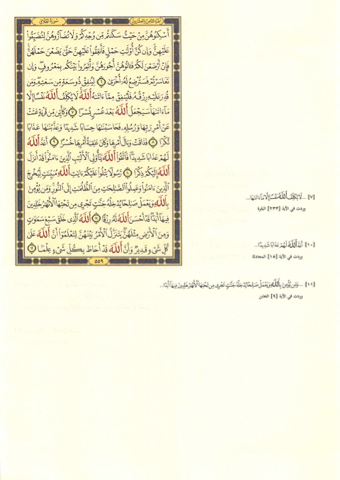 الجزء الثامن والعشرون
سورة الطلاق
أَسْكِنُوهُنَّ مِنْ حَيْثُ سَكَنتُم مِّن وُجْدِكُمْ وَلَا تُضَآرُّوهُنَّ لِتُضَيِّقُوا۟
عَلَيْهِنَّ وَإِن كُنَّ أُو۟لَـٰتِ حَمْلٍ فَأَنفِقُوا۟ عَلَيْهِنَّ حَتَّىٰ يَضَعْنَ حَمْلَهُنَّ
فَإِنْ أَرْضَعْنَ لَكُمْ فَـَٔاتُوهُنَّ أُجُورَهُنَّ وَأْتَمِرُوا۟ بَيْنَكُم بِمَعْرُوفٍ وَإِن
تَعَاسَرْتُمْ فَسَتُرْضِعُ لَهُۥٓ أُخْرَىٰ ٦ لِيُنفِقْ ذُو سَعَةٍ مِّن سَعَتِهِۦ وَمَن
قُدِرَ عَلَيْهِ رِزْقُهُۥ فَلْيُنفِقْ مِمَّآ ءَاتَىٰهُ ٱللَّهُ لَا يُكَلِّفُ ٱللَّهُ نَفْسًا إِلَّا
مَآ ءَاتَىٰهَا سَيَجْعَلُ ٱللَّهُ بَعْدَ عُسْرٍ يُسْرًا ٧ وَكَأَيِّن مِّن قَرْيَةٍ عَتَتْ
عَنْ أَمْرِ رَبِّهَا وَرُسُلِهِۦ فَحَاسَبْنَـٰهَا حِسَابًا شَدِيدًا وَعَذَّبْنَـٰهَا عَذَابًا
نُّكْرًا ٨ فَذَاقَتْ وَبَالَ أَمْرِهَا وَكَانَ عَـٰقِبَةُ أَمْرِهَا خُسْرًا ٩ أَعَدَّ ٱللَّهُ
لَهُمْ عَذَابًا شَدِيدًا فَٱتَّقُوا۟ ٱللَّهَ يَـٰٓأُو۟لِى ٱلْأَلْبَـٰبِ ٱلَّذِينَ ءَامَنُوا۟ قَدْ أَنزَلَ
ٱللَّهُ إِلَيْكُمْ ذِكْرًا ١٠ رَّسُولًا يَتْلُوا۟ عَلَيْكُمْ ءَايَـٰتِ ٱللَّهِ مُبَيِّنَـٰتٍ لِّيُخْرِجَ
ٱلَّذِينَ ءَامَنُوا۟ وَعَمِلُوا۟ ٱلصَّـٰلِحَـٰتِ مِنَ ٱلظُّلُمَـٰتِ إِلَى ٱلنُّورِ وَمَن يُؤْمِنۢ
بِٱللَّهِ وَيَعْمَلْ صَـٰلِحًا يُدْخِلْهُ جَنَّـٰتٍ تَجْرِى مِن تَحْتِهَا ٱلْأَنْهَـٰرُ خَـٰلِدِينَ
فِيهَآ أَبَدًا قَدْ أَحْسَنَ ٱللَّهُ لَهُۥ رِزْقًا ١١ ٱللَّهُ ٱلَّذِى خَلَقَ سَبْعَ سَمَـٰوَٰتٍ
وَمِنَ ٱلْأَرْضِ مِثْلَهُنَّ يَتَنَزَّلُ ٱلْأَمْرُ بَيْنَهُنَّ لِتَعْلَمُوٓا۟ أَنَّ ٱللَّهَ عَلَىٰ
كُلِّ شَىْءٍ قَدِيرٌ وَأَنَّ ٱللَّهَ قَدْ أَحَاطَ بِكُلِّ شَىْءٍ عِلْمًۢا ١٢
٥٥٩
[٧] ...لَا يُكَلِّفُ ٱللَّهُ نَفْسًا إِلَّا مَآ ءَاتَىٰهَا...
وردت في الآية [٢٣٣] البقرة
[١٠] أَعَدَّ ٱللَّهُ لَهُمْ عَذَابًا شَدِيدًا...
وردت في الآية [١٥] المجادلة
[١١] ...وَمَن يُؤْمِنۢ بِٱللَّهِ وَيَعْمَلْ صَـٰلِحًا يُدْخِلْهُ جَنَّـٰتٍ تَجْرِى مِن تَحْتِهَا ٱلْأَنْهَـٰرُ خَـٰلِدِينَ فِيهَآ أَبَدًا...
وردت في الآية [٩] التغابن